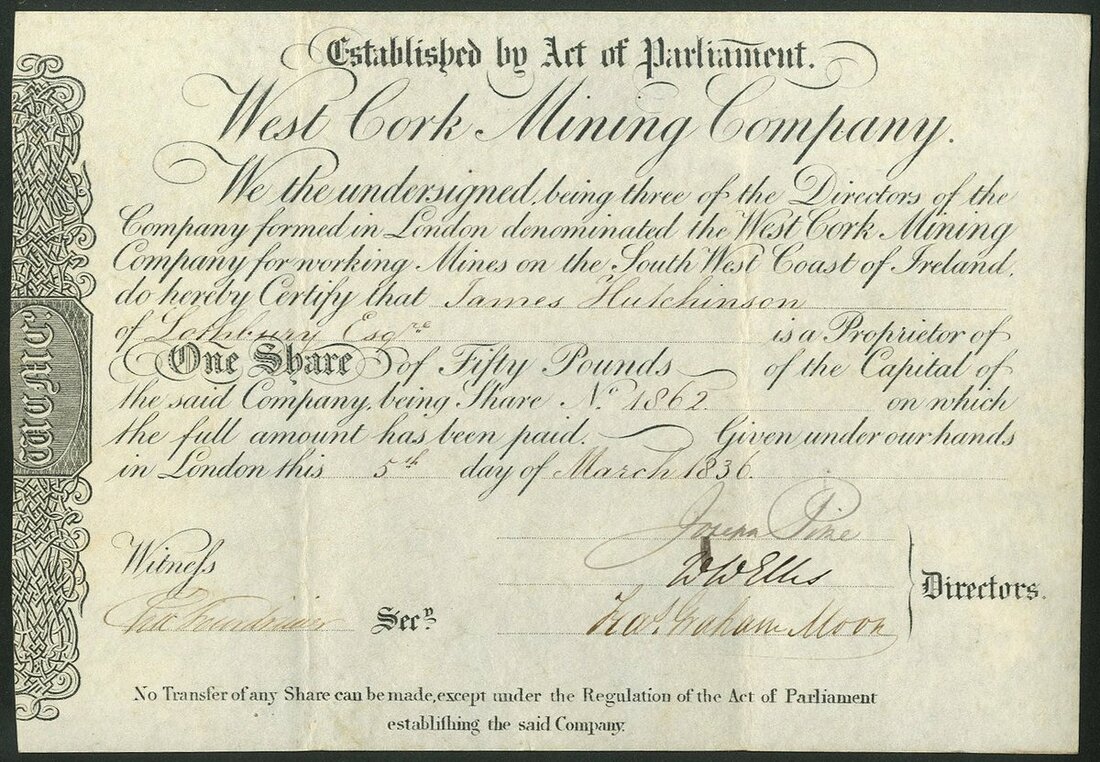 Established by Act of Parliament.
West Cork Mining Company.
We the undersigned, being three of the Directors of the
Company formed in London denominated the West Cork Mining
Company for working Mines on the South West Coast of Ireland,
do hereby Certify that James Hutchinson
of Lothbury Esqre is a Proprietor of
One Share of Fifty Pounds of the Capital of
the said Company, being Share No. 1862 on which
the full amount has been paid. Given under our hands
in London this 5th day of March 1836.
W.C.M.Co.
Joseph Pine
W W Ellis
Witneſs
Directors.
Secy.
Graham Moon
No Transfer of any Share can be made, except under the Regulation of the Act of Parliament
establiſhing the said Company.